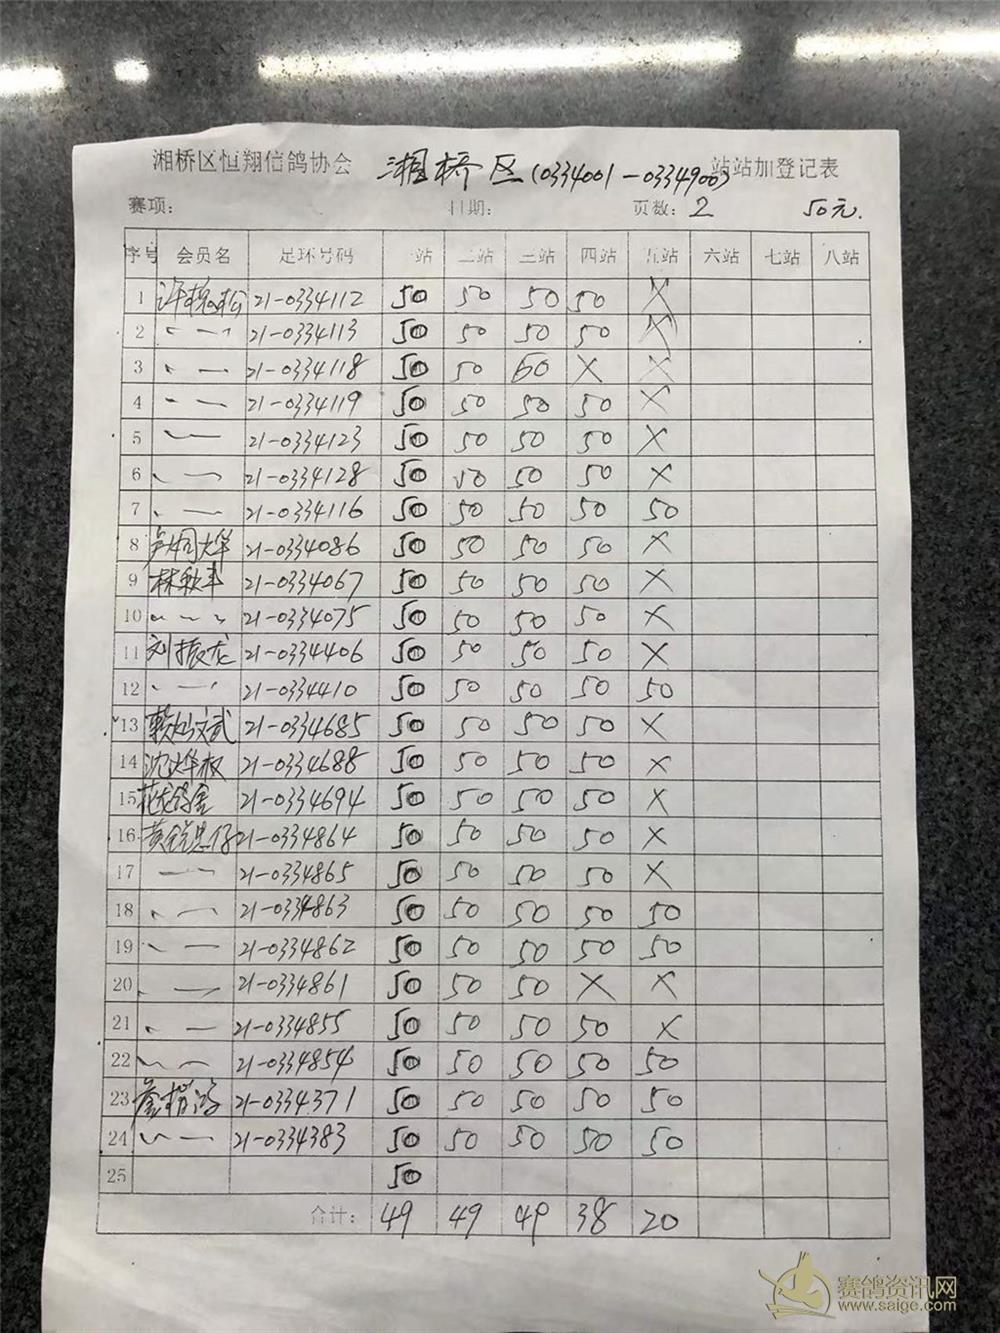 湘桥区恒翔信鸽协会 湘桥区(0334001-0334900) 站站加登记表
赛项: 日期: 页数: 2 50元.
序号 会员名 足环号码 一站 二站 三站 四站 五站 六站 七站 八站
1 21-0334112 50 50 50 50 X
2 21-0334113 50 50 50 50 X
3 21-0334118 50 50 60 X X
4 21-0334119 50 50 50 50 X
5 21-0334123 50 50 50 50 X
6 21-0334128 50 50 50 50 X
7 21-0334116 50 50 50 50 50
8 21-0334086 50 50 50 50 X
9 林秋丰 21-0334067 50 50 50 50 X
10 21-0334075 50 50 50 50 X
11 刘振龙 21-0334406 50 50 50 50 X
12 21-0334410 50 50 50 50 50
13 21-0334685 50 50 50 50 X
14 沈烽权 21-0334688 50 50 50 50 X
15 21-0334694 50 50 50 50 X
16 21-0334864 50 50 50 50 X
17 21-0334865 50 50 50 50 X
18 21-0334863 50 50 50 50 50
19 21-0334862 50 50 50 50 50
20 21-0334861 50 50 50 X X
21 21-0334855 50 50 50 50 X
22 21-0334854 50 50 50 50 50
23 21-0334371 50 50 50 50 50
24 21-0334383 50 50 50 50 50
25 50
合计: 49 49 49 38 20
赛鸽资讯网
www.saige.com